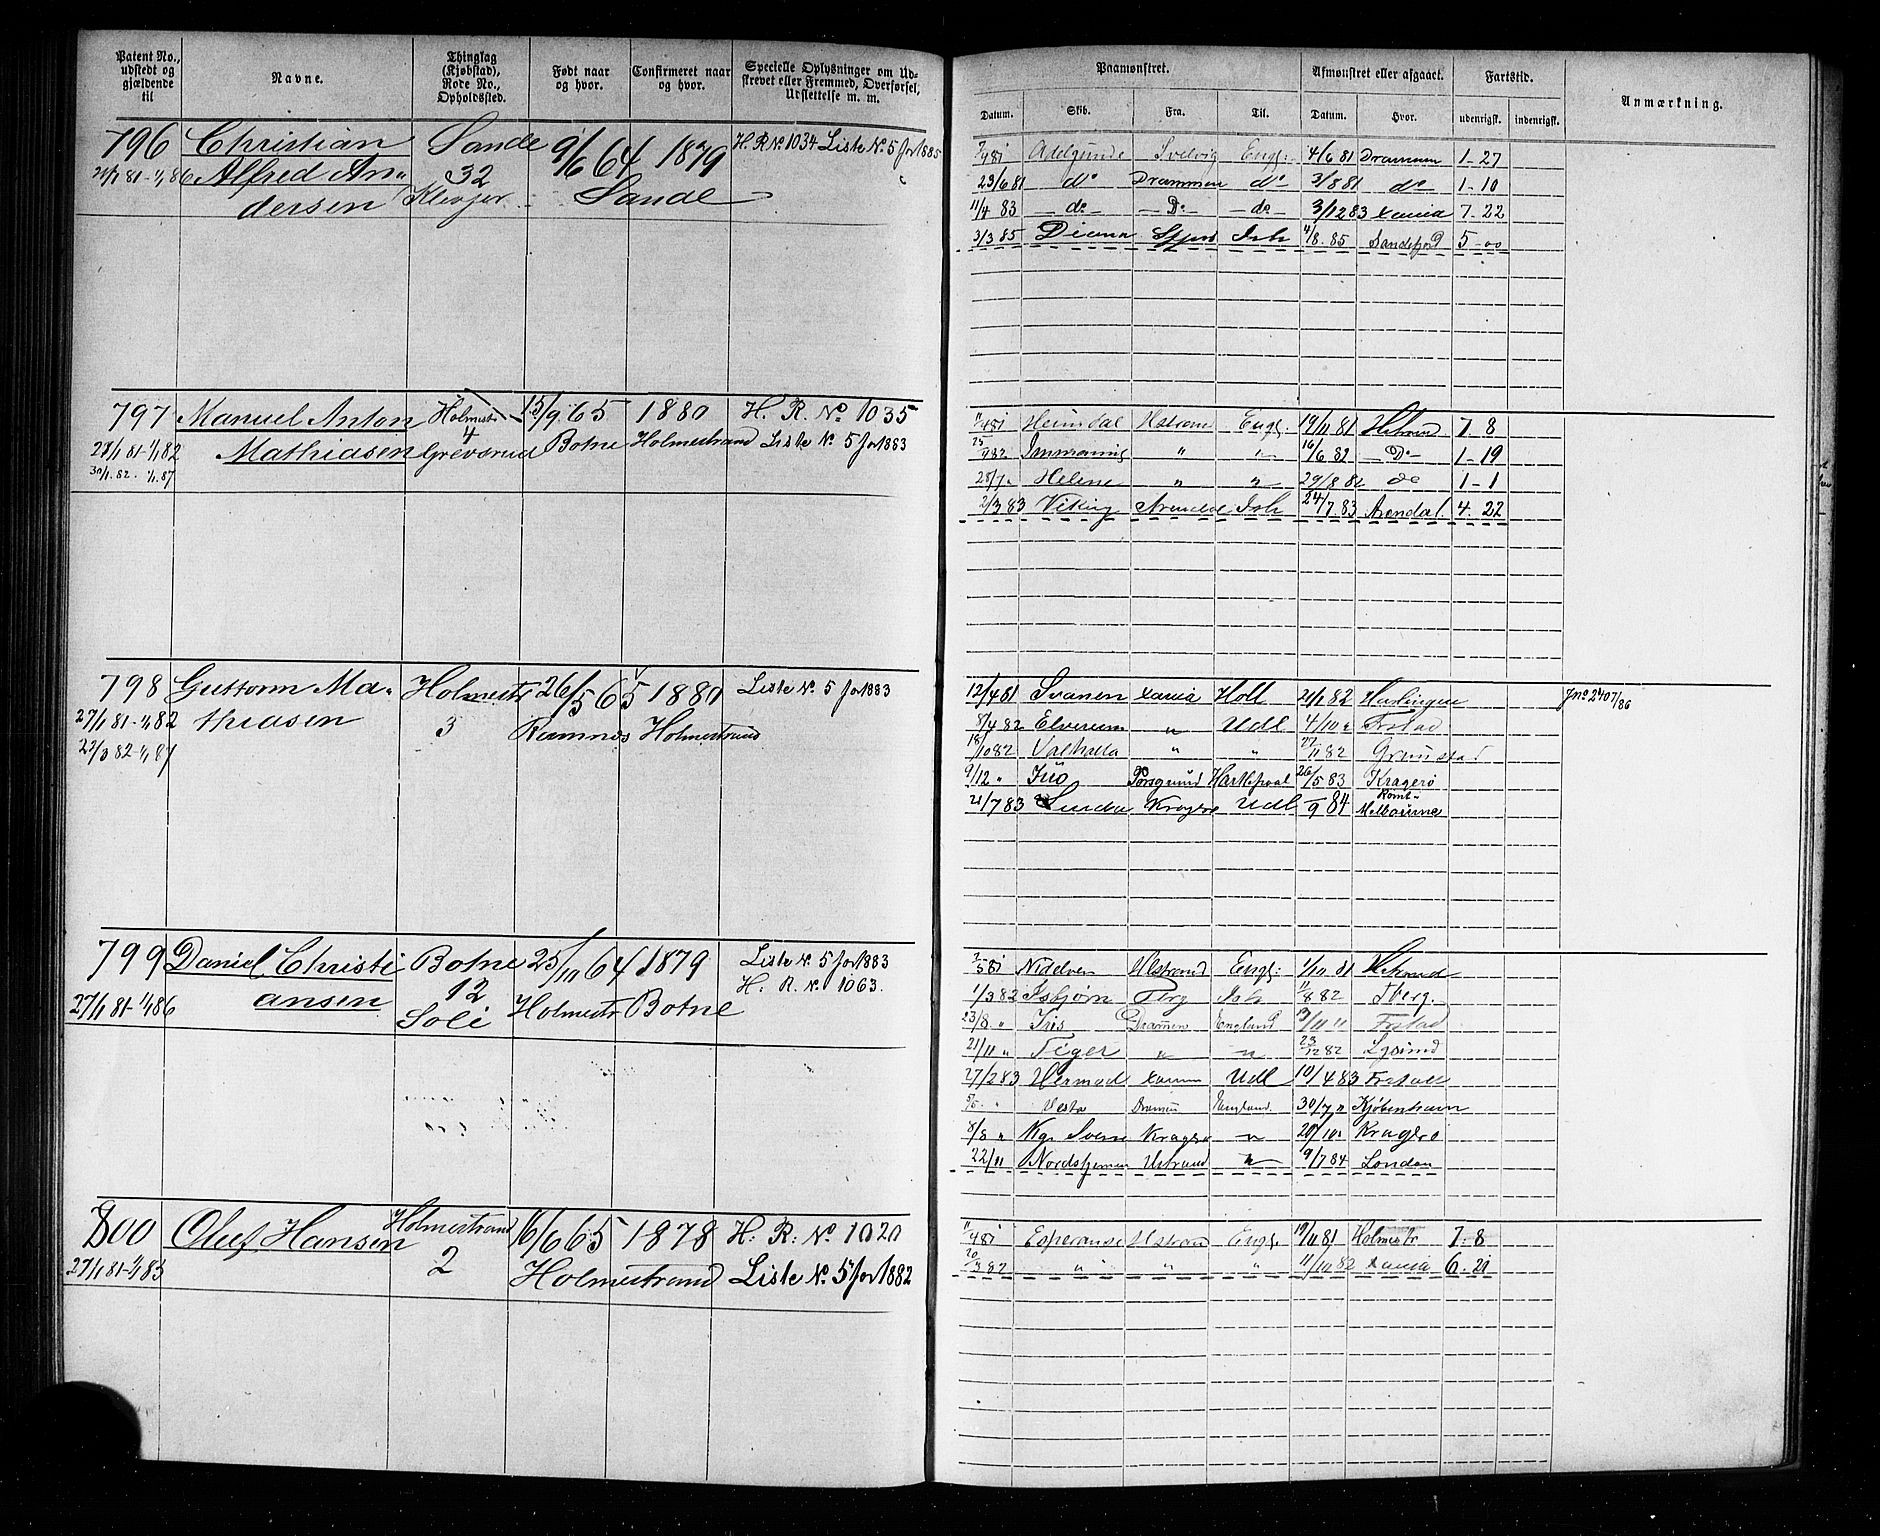 Patent No., udstedt og gjældende til
Navne.
Thinglag (Kjøbstad), Rode No., Opholdssted.
Født naar og hvor.
Confirmeret naar og hvor.
Specielle Oplysninger om Udskrevet eller Fremmed, Overførsel, Udslettelse m. m.
Paamønstret.
Afmønstret eller afgaaet.
Fartstid.
Anmærkning.
Datum. Skib. Fra. Til. Datum. Hvor. udenrigsk. indenrigsk.
796 Christian Sande 9/6 64 1879 H. R No 1034 Liste No. 5 for 1885
Alfred An- 32
dersen Klevjer Sande
Adelgunde Svelvig Engl: 4/6 81 Drammen 1-27
23/6 81 do Drammen do 3/8 81 do 1-10
11/4 83 do Do do 3/12 83 Xania 7-22
3/3 85 Diana Ish 4/8-85 Sandefjord 5-00
797 Manuel Anton Holmestr 15/9 65 1880 H. R. No 1035
28/1 81-1/1 82 Mathiasen 4 Grevsrud Botne Holmestrand Liste No. 5 for 1883
30/1.82.-1/1.87
11/4 81 Heimdal Hstrand Engl. 19/11 81 Hstrand 7-8
25/4 82 " " 16/6 82 Do 1-19
28/7 " Helene " " 29/8 82 do 1-1
2/3 83 Viking Arendal Ish 24/7 83 Arendal. 4-22
798 Guttorm Ma- Holmestr 26/5 65 1880 Liste No. 5 for 1883
27/1 81-1/1 82 thiasen 3 Ramnes Holmestrand
23/3 82-1/1 87
12/4 81 Svanen Xania Holl 21/1 82 Harlingen Jno 2407/86
8/4 82 Elverum " Udl 4/10 " Frstad
18/10 82 Valhalla " " 27/11 82 Grimstad
9/12 " Juo Porsgrund Hartlepool 26/5 83 Kragerø
21/7 83 Kragerø Udl /9 84 Rømt Melbourne
799 Daniel Christi Botne 25/10 64 1879 Liste No. 5 for 1883
27/1 81-1/1 86 ansen 12 Soli Holmestr Botne H. R. No. 1063.
Nidelven Hstrand Engl: 1/10 81 Hstrand
1/3 82 Isbjørn Tbrg Ish 11/8 82 Tberg.
23/8 " Iris Drammen England 13/11 " Frstad
21/11 " Tiger " " 23/12 82
27/2 83 Hermod Xania Udl 10/4 83 Frstad
" Vesta Drammen England. 30/7 " Kjøbenhavn
8/8 " Kg. Sverre Kragerø " 20/10 " Kragerø
22/11 Nordstjernen Hstrand " 9/7 84 London
800 Oluf Hansen Holmestrand 16/6 65 1878 H. R. No 1020
27/1 81-1/1 83 2 Holmestrand Liste No. 5 for 1882
11/4 81 Esperanse Hstrand Engl. 19/11 81 Holmestr 7-8
20/3 82 " " " 11/10 82 Xania 6-21